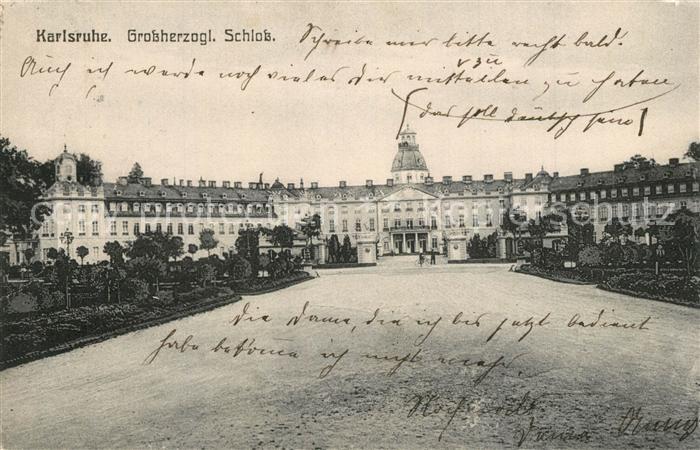 Karlsruhe. Großherzogl. Schloß.
Schreibe mir bitte recht bald.
Auch ich werde noch vieles Dir mitteilen zu haben
zu
(das soll deutsch sein)
die Dame, die ich bis jetzt bedient
habe bekomme ich nicht mehr.